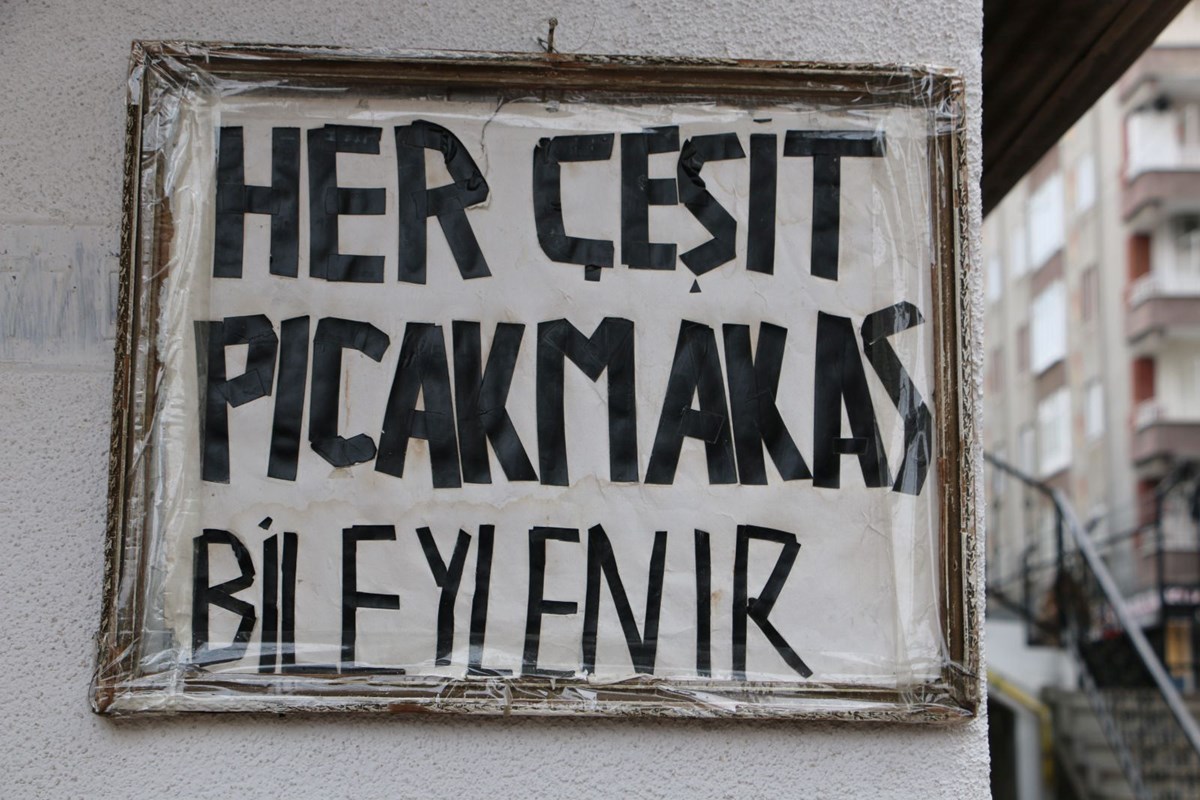 HER ÇEŞİT
PICAKMAKAS
BİLEYLENIR